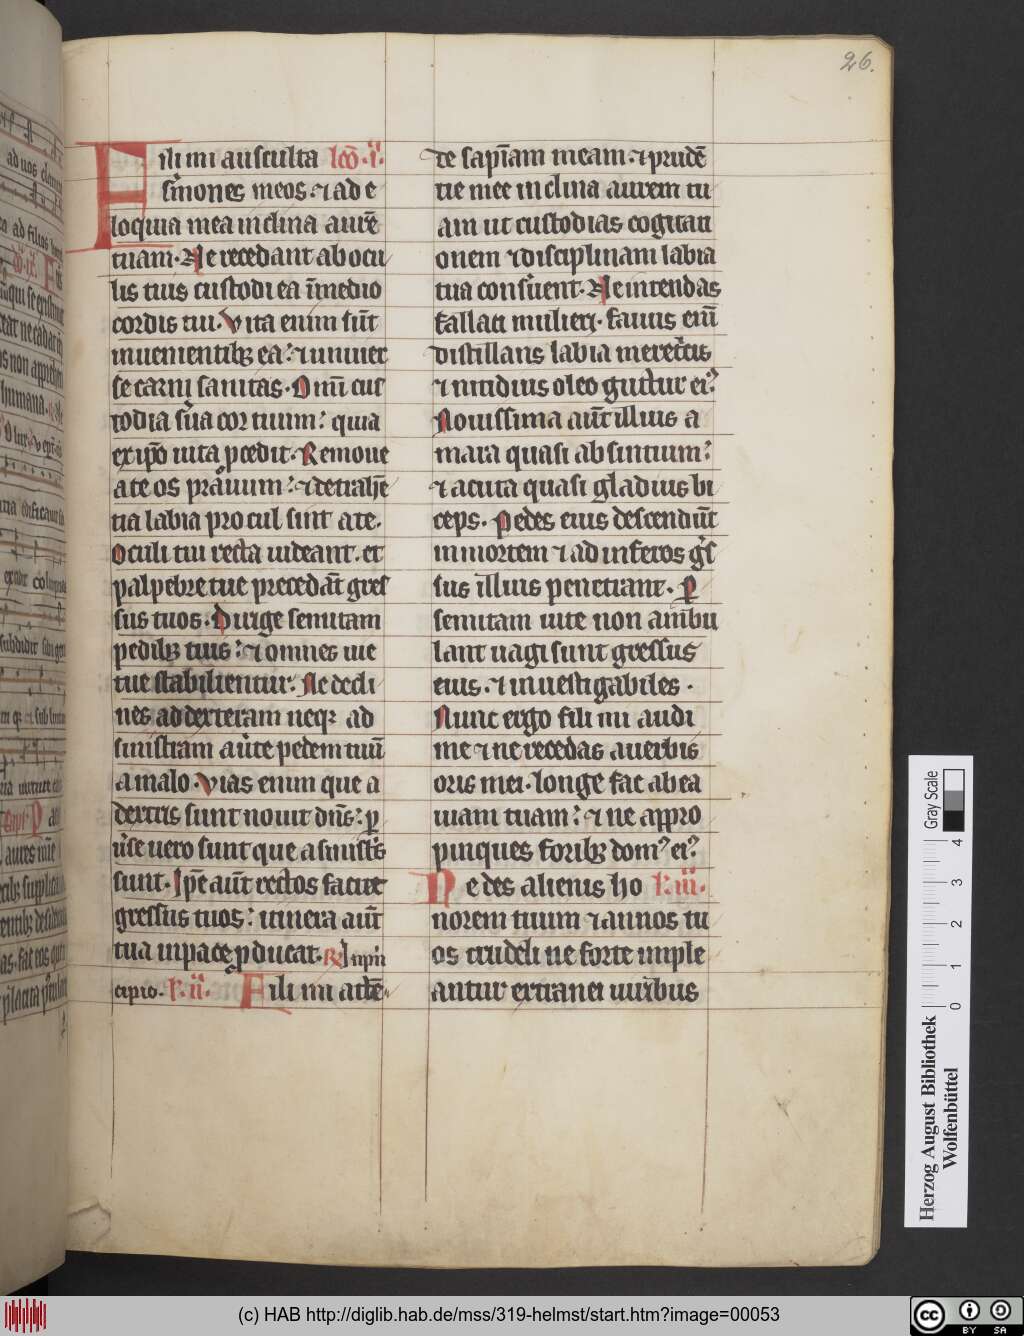 26.
Fili mi ausculta lcō · i ·
ẜmones meos · ⁊ ad e
loquia mea inclina aurē
tuam · Ne recedant ab ocu
lis tuis custodi ea ī medio
cordis tui · Vita enim sūt
inuenientibꝫ ea : ⁊ uniuer
se carni sanitas · Omī cus
todia s̓ua cor tuum : quia
ex ip̄o uita p̄cedit · Remoue
a te os prauum : ⁊ detrahē
tia labia procul sint a te ·
Oculi tui recta uideant · et
palpebre tue precedāt gres
sus tuos · Dirige semitam
pedibꝫ tuis : ⁊ omnes uie
tue stabilientur : Ne decli
nes ad dexteram neqꝫ ad
sinistram au̓te pedem tuū
a malo · Vias enim que a
dextris sunt nouit dn̄s : ꝑ
u̓se uero sunt que a sinist̓s
sunt · Ip̄e aūt rectos faciet
gressus tuos : itinera aūt
tua in pace ꝓducat · R̷ In pͥn
cipio · R · ii · Fili mi attē
te sapīam meam · ⁊ prudē
tie mee inclina aurem tu
am ut custodias cogitati
onem ⁊ disciplinam labia
tua conẜuent · Ne intendas
fallati mulierꝫ · fauus enī
distillans labia meret̓cis
⁊ nitidius oleo guttur eiꝰ
Nouissima aūt illius a
mara quasi absintium :
⁊ acuta quasi gladius bi
ceps · Pedes eius descendūt
in mortem ⁊ ad inferos g̓s
sus illius penetrant · P
semitam uite non ambu
lant uagi sunt gressus
eius · ⁊ inuestigabiles ·
Nunc ergo fili mi audi
me ⁊ ne recedas a uerbis
oris mei · longe fac ab ea
uiam tuam : ⁊ ne appro
pinques foribꝫ domꝰ eiꝰ
Ne des alienis ho R · iii ·
norem tuum ⁊ annos tu
os crudeli ne forte imple
antur extranei uiribus
Gray Scale
0 1 2 3 4
Herzog August Bibliothek
Wolfenbüttel
(c) HAB http://diglib.hab.de/mss/319-helmst/start.htm?image=00053
cc BY SA